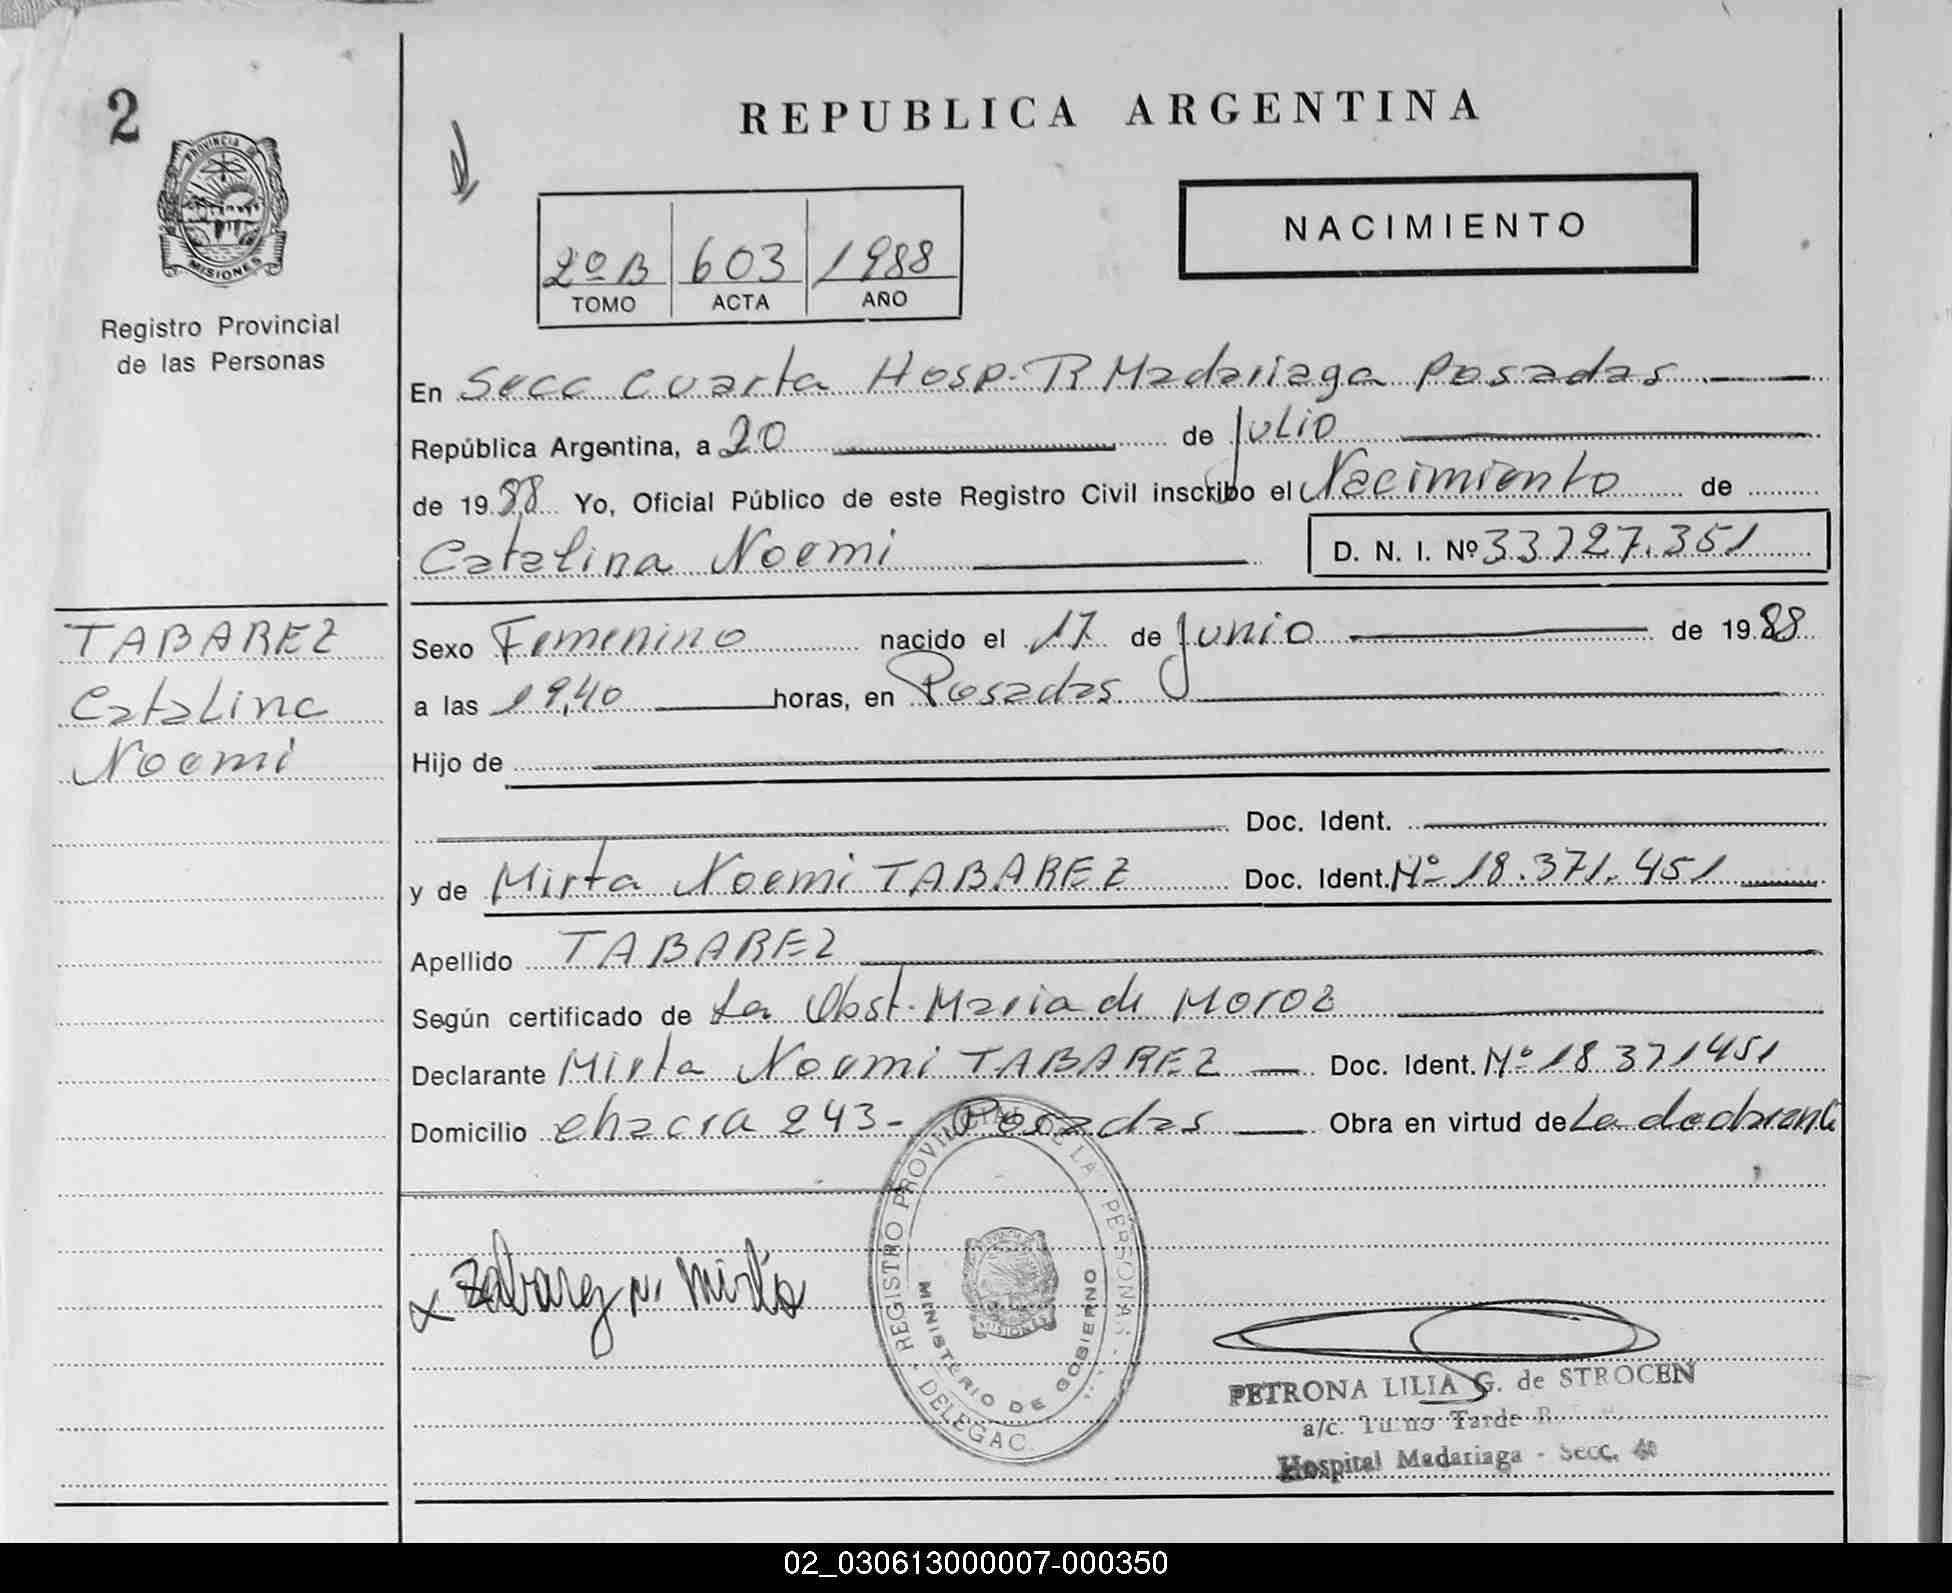 2
PROVINCIA DE
MISIONES
Registro Provincial
de las Personas
REPUBLICA ARGENTINA
NACIMIENTO
2º B 603 1988
TOMO ACTA AÑO
En Secc Cuarta Hosp. R Madariaga Posadas
República Argentina, a 20 de Julio
de 1988 Yo, Oficial Público de este Registro Civil inscribo el Nacimiento de
Catalina Noemi D. N. I. Nº 33.727.351
TABAREZ
Catalina
Noemi
Sexo Femenino nacido el 17 de Junio de 1988
a las 19,40 horas, en Posadas
Hijo de
Doc. Ident.
y de Mirta Noemi TABAREZ Doc. Ident. Nº 18.371.451
Apellido TABAREZ
Según certificado de La Obst. Maria de Moroz
Declarante Mirta Noemi TABAREZ Doc. Ident. Nº 18 371451
Domicilio chacra 243- Posadas Obra en virtud de La declarante
Tabarez N. Mirta
REGISTRO PROVINCIAL DE LA PERSONAS
MINISTERIO DE GOBIERNO
MISIONES
DELEGAC.
PETRONA LILIA G. de STROCEN
a/c. Turno Tarde
Hospital Madariaga - Secc.
02_030613000007-000350